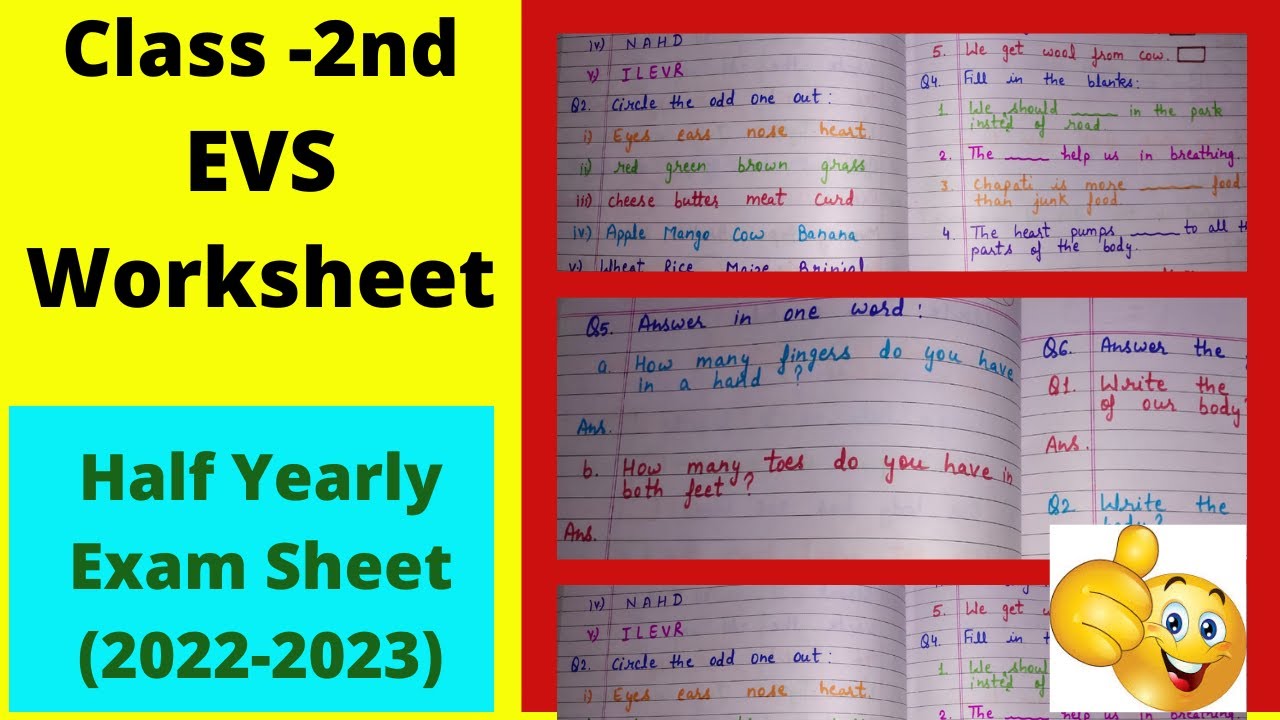 Class -2nd
EVS
Worksheet
Half Yearly
Exam Sheet
(2022-2023)
iv) NAHD
v) ILEVR
Q2. Circle the odd one out :
i) Eyes ears nose heart.
ii) red green brown grass
iii) cheese butter meat curd
iv) Apple Mango Cow Banana
v) Wheat Rice Maize Brinjal
5. We get wool from cow.
Q4. Fill in the blanks:
1. We should ____ in the park
insted of road.
2. The ____ help us in breathing.
3. Chapati is more ____ food
than junk food.
4. The heart pumps ____ to all th
parts of the body.
Q5. Answer in one word :
a. How many fingers do you have
in a hand ?
Ans.
b. How many toes do you have in
both feet ?
Ans.
Q6. Answer the
Q1. Write the
of our body?
Ans.
Q2 Write the
body?
iv) NAHD
v) ILEVR
Q2. Circle the odd one out :
i) Eyes ears nose heart.
5. We get
Q4. Fill in
1. We shoul
insted of
2. The ____ help us in breathing.